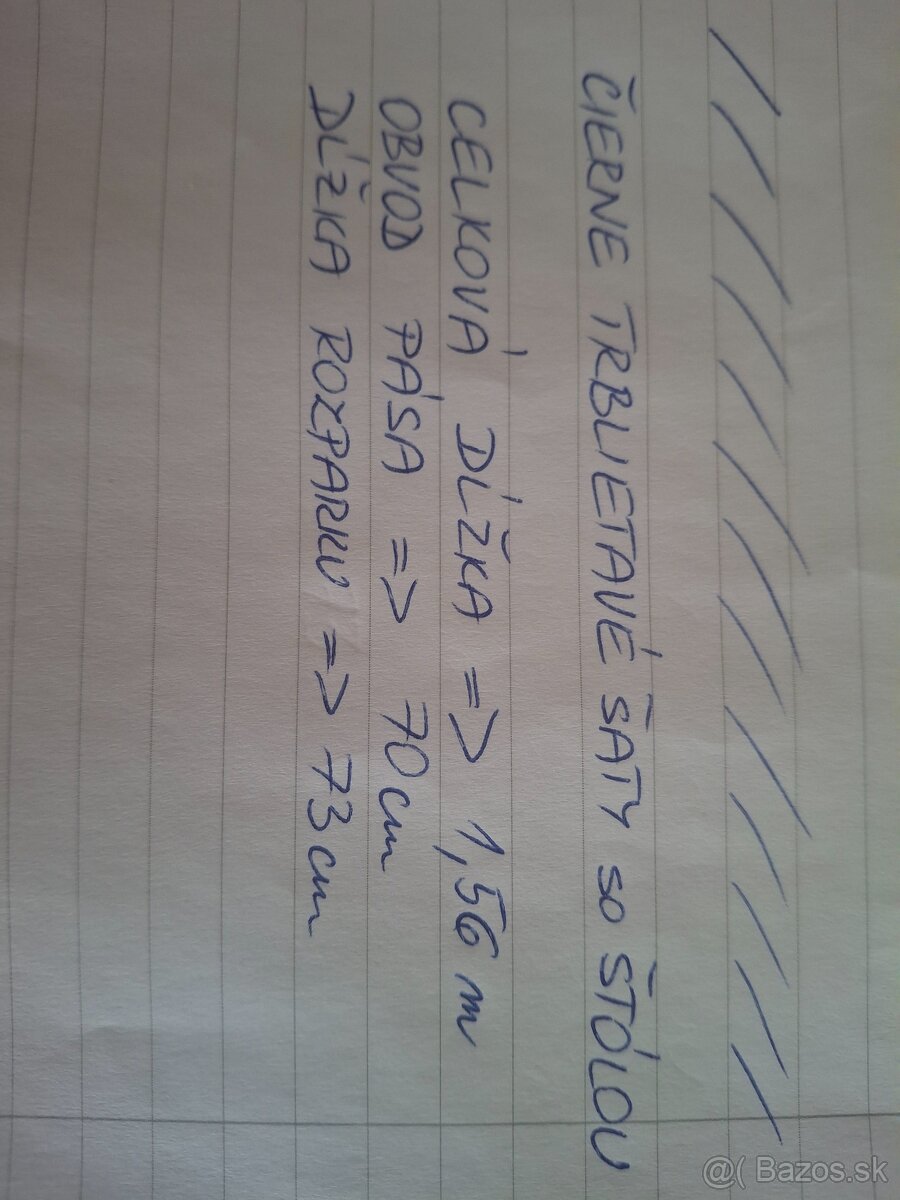 ČIERNE TRBLIETAVÉ ŠATY SO ŠTÓLOU
CELKOVÁ DĹŽKA => 1,56 m
OBVOD PÁSA => 70 cm
DĹŽKA ROZPARKU => 73 cm
@( Bazos.sk